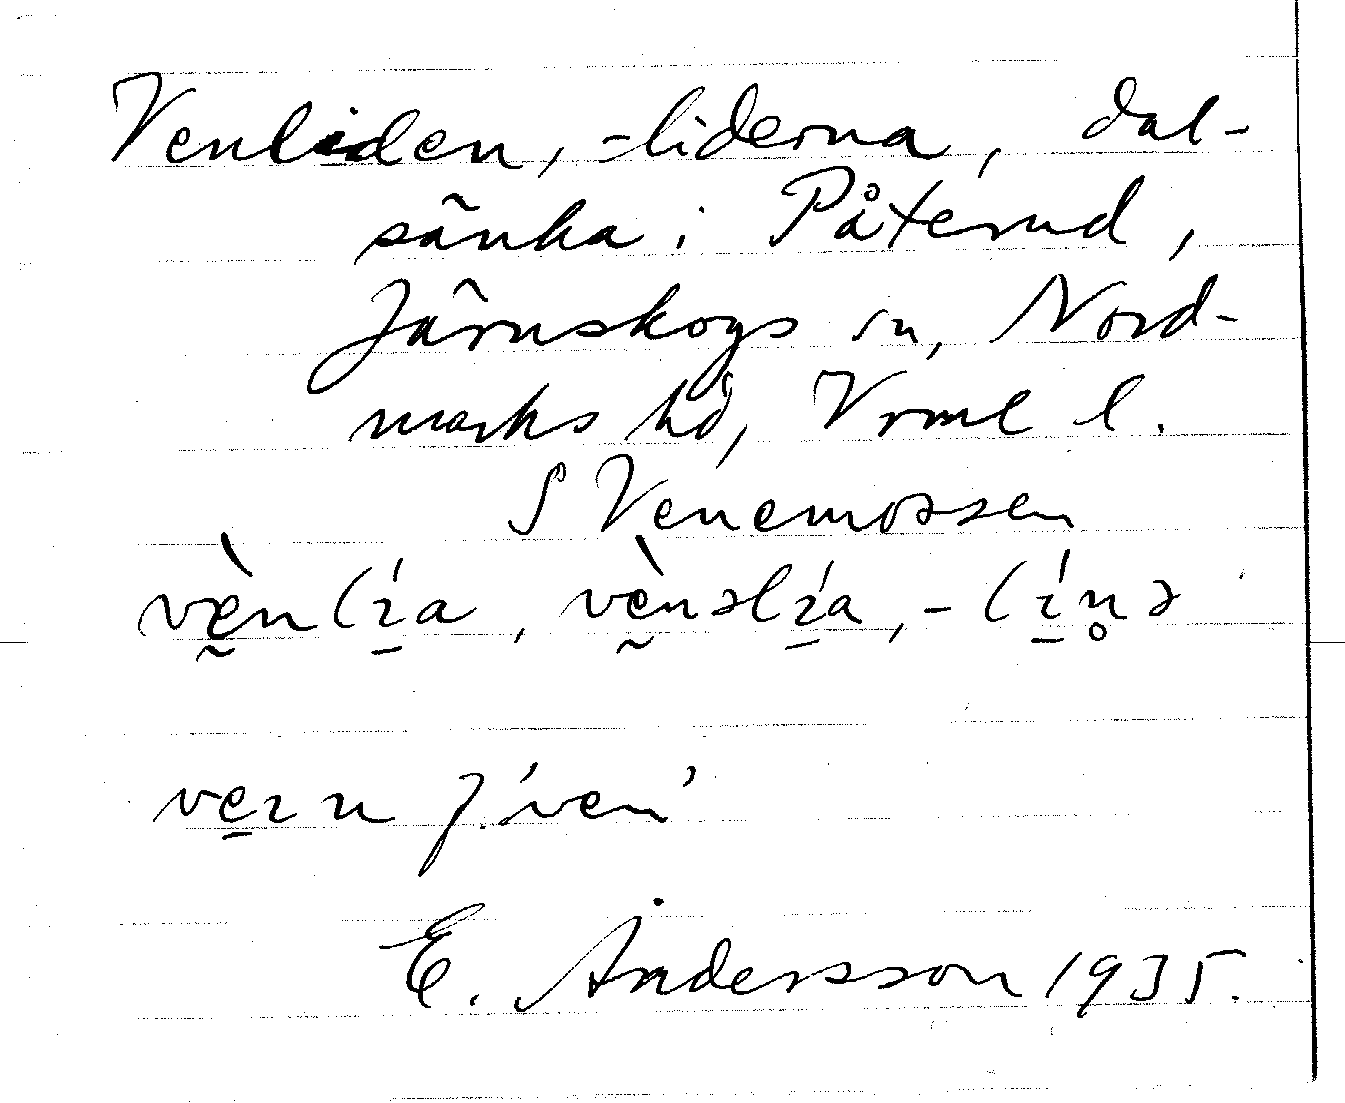 Venliden, -liderna, dal-
sänka i Påterud,
Järnskogs sn, Nord-
marks hd, Vrml l.
S Venemossen
vę̀nlí̱a, vę̀nəlí̱a, -lí̱n̥ə
ve̱ın f. 'ven'
E. Andersson 1935.